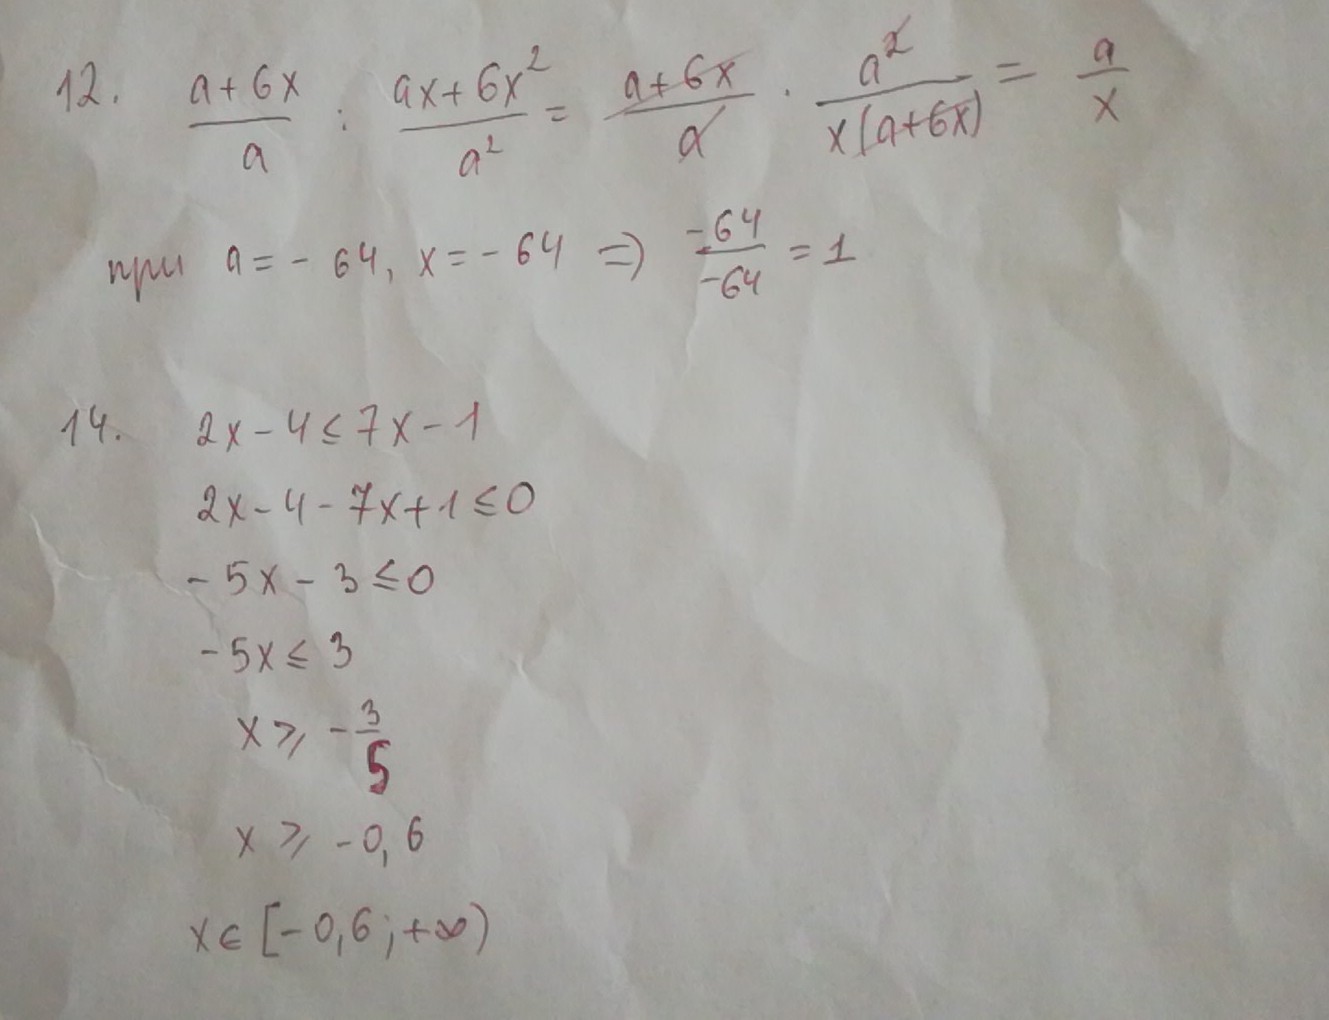 12. (a+6x)/a : (ax+6x²)/a² = (a+6x)/a · a²/(x(a+6x)) = a/x
при a = - 64, x = - 64 ⇒ -64/-64 = 1
14. 2x - 4 ≤ 7x - 1
2x - 4 - 7x + 1 ≤ 0
- 5x - 3 ≤ 0
- 5x ≤ 3
x ⩾ - 3/5
x ⩾ - 0,6
x ∈ [- 0,6 ; +∞)